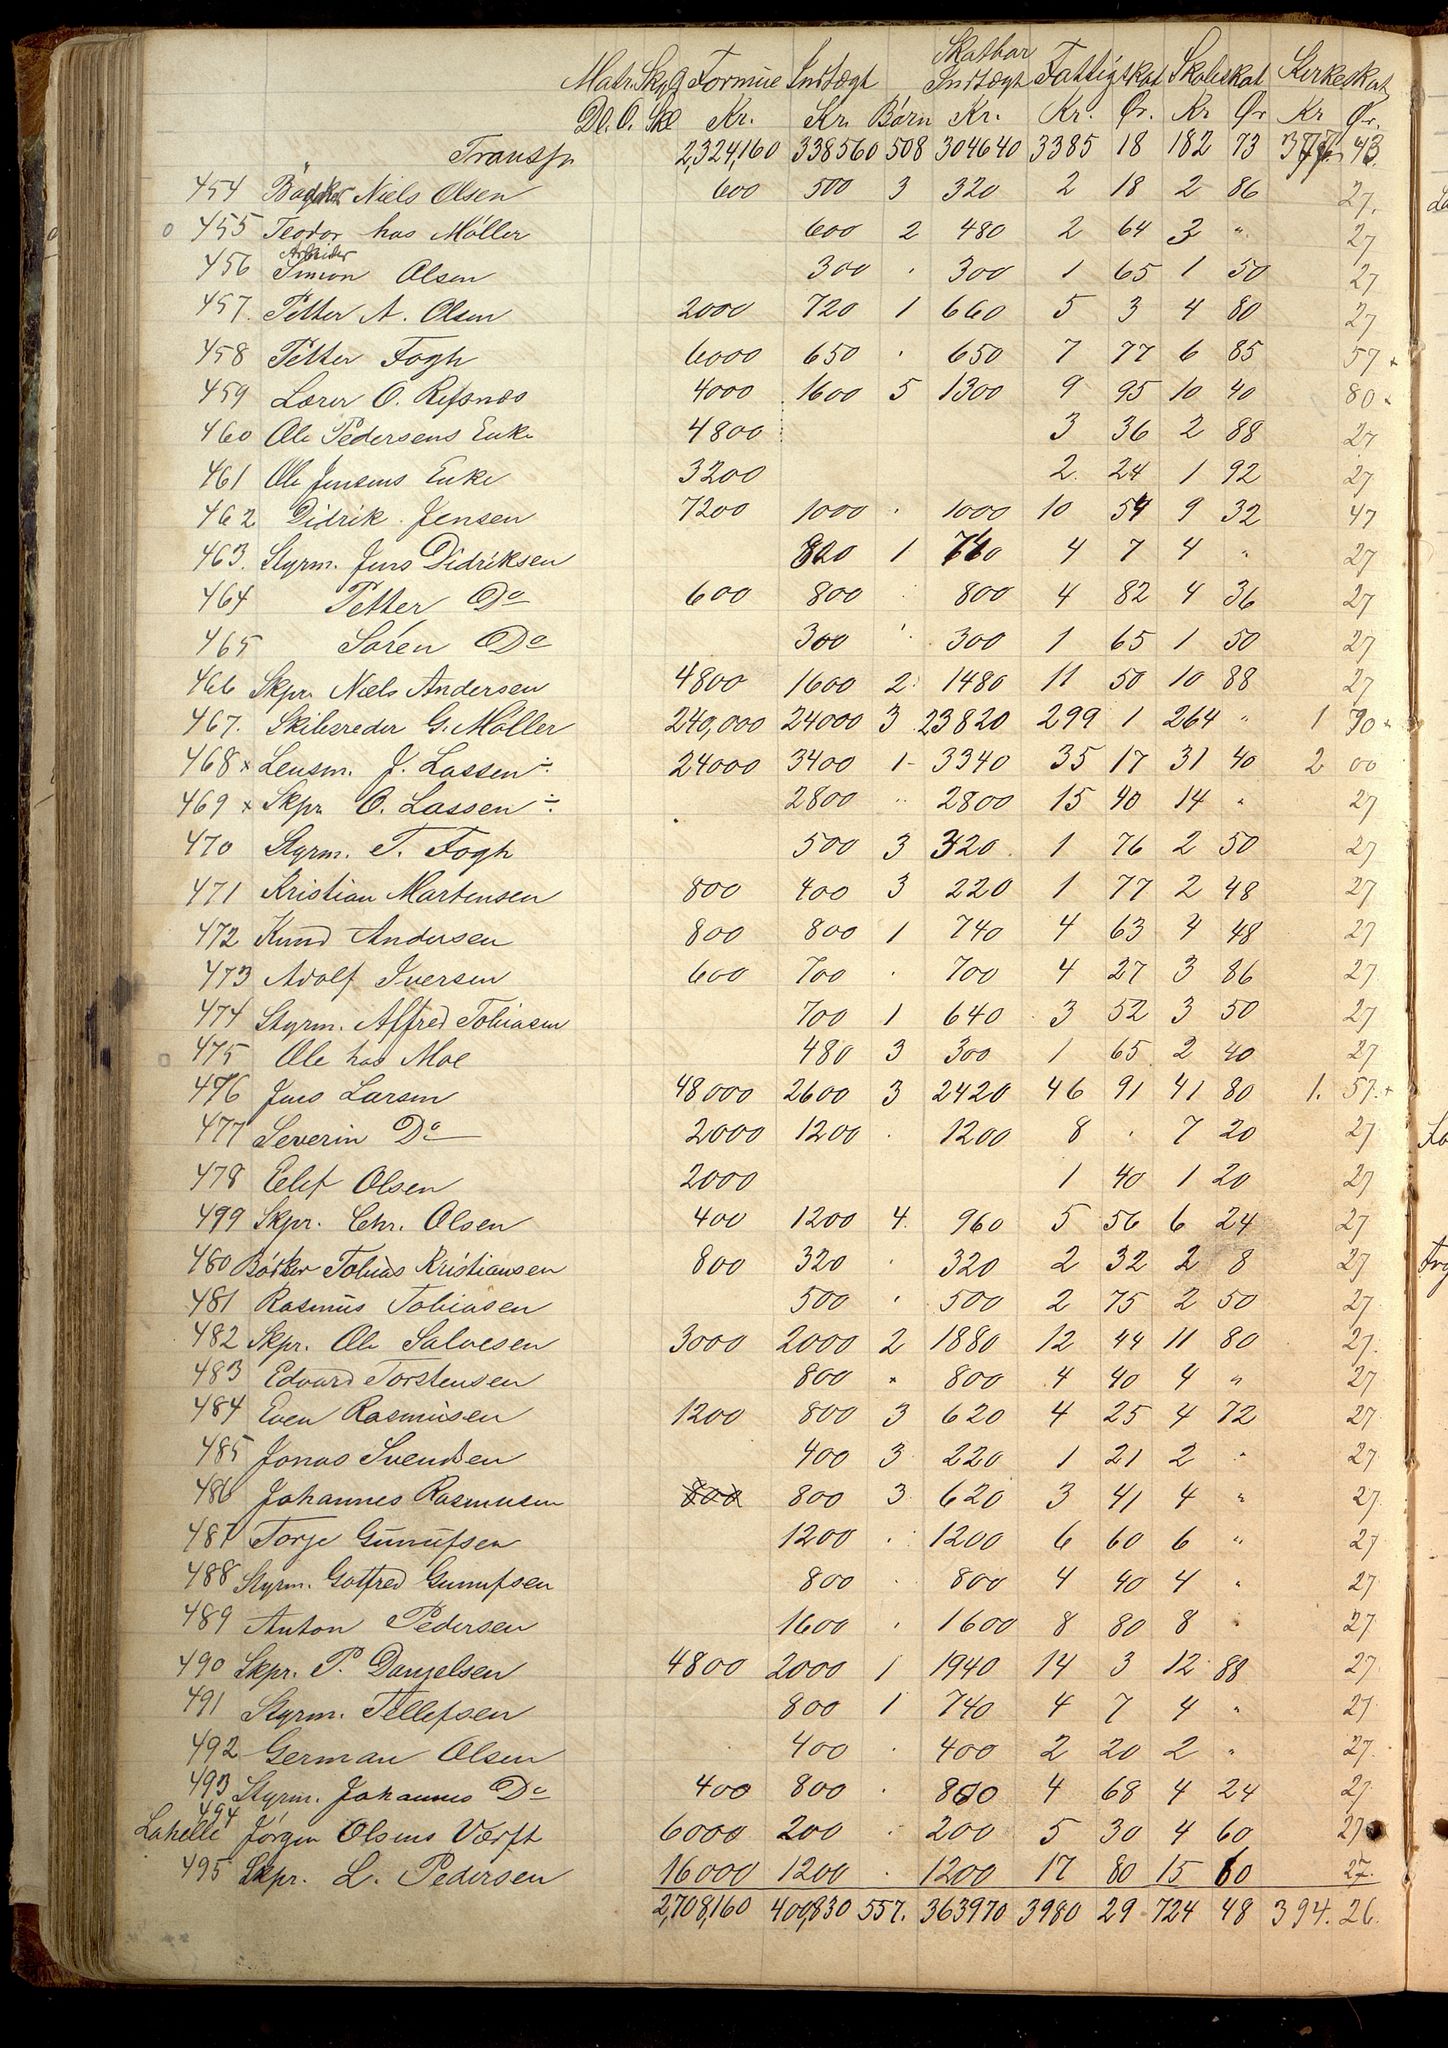 Skatbar
Matr. Skyld Formue Indtægt Indtægt Fattigskat Skoleskat Kirkeskat
Dl. O. Skl Kr. Kr. Børn Kr. Kr. Ør. Kr Ør Kr Ør.
Transp 2,324,160 338560 508 304640 3385 18 182 73 43.
454 Niels Olsen 600 500 3 320 2 18 2 86 27.
o 455 Teodor hos Møller 600 2 480 2 64 3 " 27
Arbeider
456 Simon Olsen 300 . 300 1 65 1 50 27
457. Petter A. Olsen 2000 720 1 660 5 3 4 80 27
458 Petter Fogh 6000 650 . 650 7 77 6 85 57 +
459 Lærer O. Refsnæs 4000 1600 5 1300 9 95 10 40 80 +
460 Ole Pedersens Enke 4800 3 36 2 88 27
461 Ole Jensens Enke 3200 2. 24 1 92 27
462 Didrik Jensen 7200 1000 . 1000 10 54 9 32 47
463. Styrm. Jens Didriksen 820 1 760 4 7 4 " 27
464 Petter Do 600 800 . 800 4 82 4 36 27
465 Søren Do 300 . 300 1 65 1 50 27
466 Skpr. Niels Andersen 4800 1600 2 1480 11 50 10 88 27
467. Skibsreder G. Møller 240,000 24000 3 23820 299 1 264 " 1 90 +
468 x Lensm. J. Lassen ÷ 24000 3400 1 - 3340 35 17 31 40 2 00
469 x Skpr O. Lassen ÷ 2800 " 2800 15 40 14 " 27
470 Styrm. T. Fogh 500 3 320. 1 76 2 50 27
471 Kristian Martensen 800 400 3 220 1 77 2 48 27
472 Knud Andersen 800 800 1 740 4 63 4 48 27
473 Adolf Iversen 600 700 . 700 4 27 3 86 27
474 Styrm. Alfred Tobiasen 700 1 640 3 52 3 50 27
o 475 Ole hos Moe 480 3 300 1 65 2 40 27
476 Jens Larsen 48000 2600 3 2420 46 91 41 80 1. 57. +
477 Severin Do 2000 1200 . 1200 8 . 7 20 27
478 Eelef Olsen 2000 1 40 1 20 27
499 Skpr. Chr. Olsen 400 1200 4. 960 5 56 6 24 27
480 Bødker Tobias Kristiansen 800 320 . 320 2 32 2 8 27
481 Rasmus Tobiasen 500 . 500 2 75 2 50 27
482 Skpr. Ole Salvesen 3000 2000 2 1880 12 44 11 80 27.
483 Edvard Torstensen 800 " 800 4 40 4 " 27
484 Even Rasmusen 1200 800 3 620 4 25 4 72 27
485 Jonas Svendsen 400 3 220 1 21 2 " 27
486 Johannes Rasmusen 800 800 3 620 3 41 4 " 27
487 Torje Gunufsen 1200 . 1200 6 60 6 " 27
488 Styrm. Gotfred Gunufsen 800 . 800 4 40 4 " 27
489 Anton Pedersen 1600 . 1600 8 80 8 " 27
490 Skpr. P. Danjelsen 4800 2000 1 1940 14 3 12 88 27
491 Styrm. Tellefsen 800 1 740 4 7 4 " 27
492 German Olsen 400 . 400 2 20 2 " 27.
493 Styrm. Johannes Do 400 800 . 800 4 68 4 24 27
494
Lahelle Jørgen Olsens Værft 6000 200 . 200 5 30 4 60 27
495 Skpr. L. Pedersen 16000 1200 . 1200 17 80 15 60 27.
2,708,160 400,830 557. 363970 3980 29 724 48 394. 26.